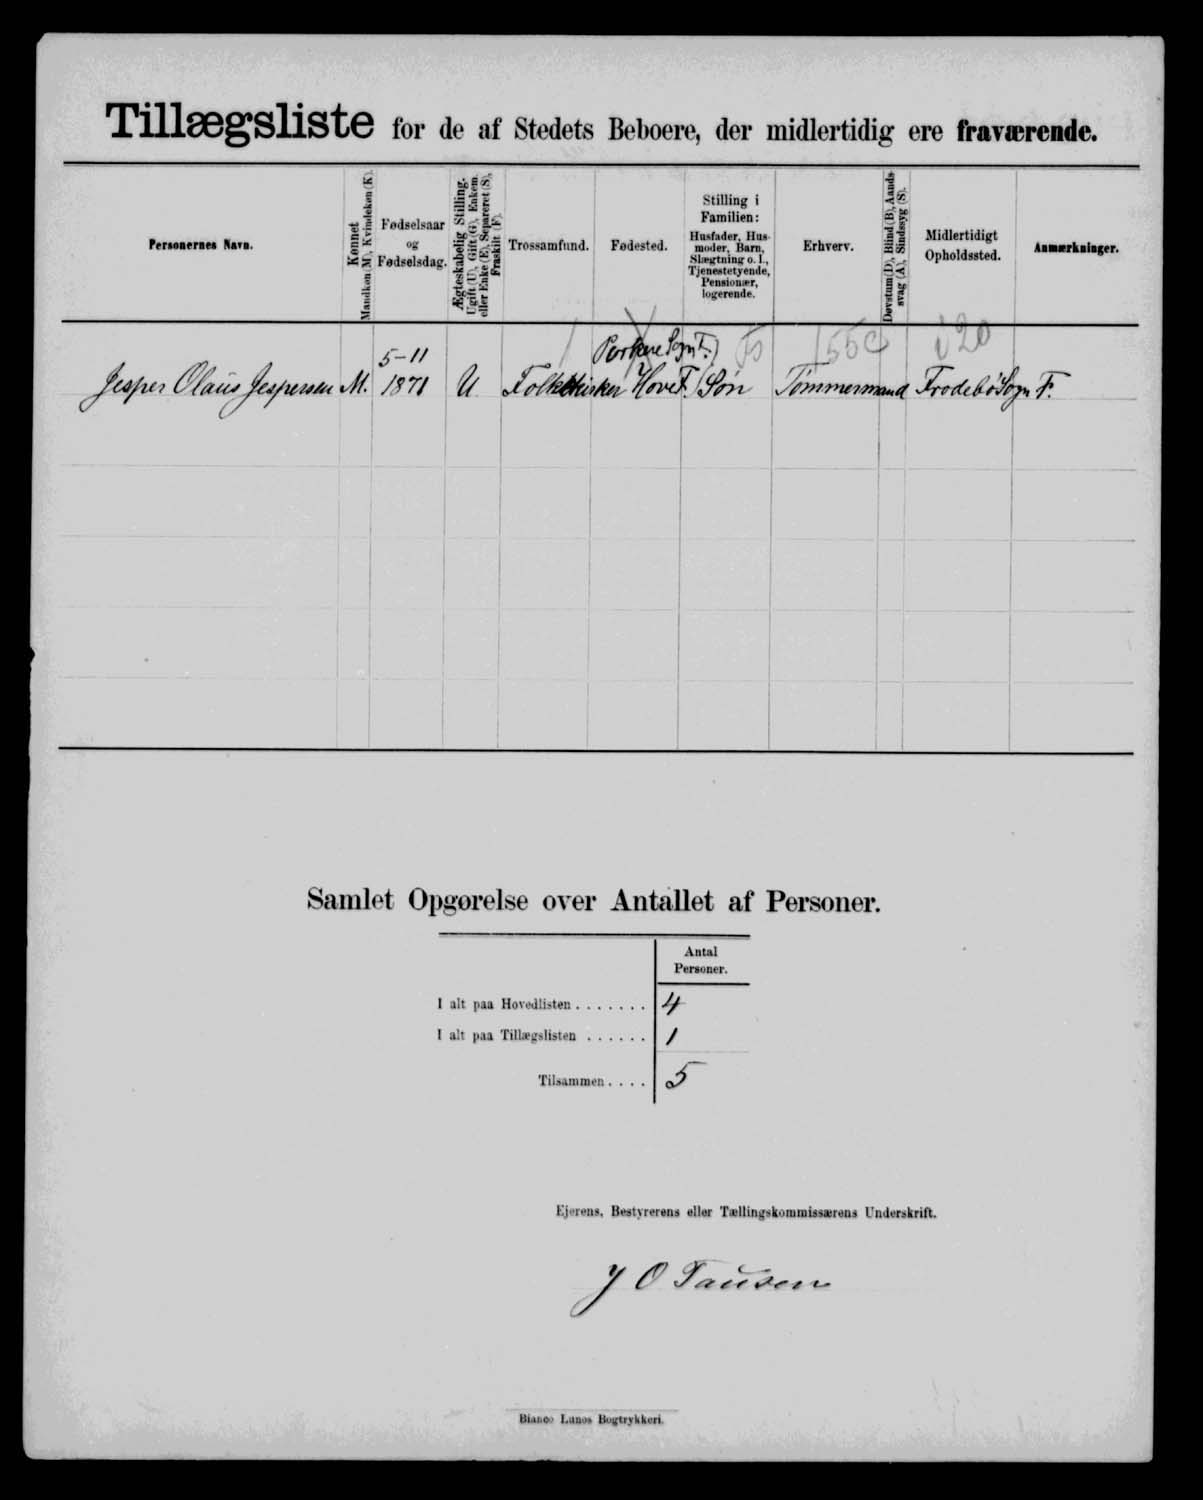 Tillægsliste for de af Stedets Beboere, der midlertidig ere fraværende.
Personernes Navn.
Kønnet
Mandkøn (M), Kvindekøn (K).
Fødselsaar
og
Fødselsdag.
Ægteskabelig Stilling.
Ugift (U), Gift (G), Enkem.
eller Enke (E), Separeret (S),
Fraskilt (F).
Trossamfund.
Fødested.
Stilling i
Familien:
Husfader, Hus-
moder, Barn,
Slægtning o. l.,
Tjenestetyende,
Pensionær,
logerende.
Erhverv.
Døvstum (D), Blind (B), Aands-
svag (A), Sindssyg (S).
Midlertidigt
Opholdssted.
Anmærkninger.
5-11 Porkere Sogn F.) 55c 120
Jesper Olaus Jespersen M. 1871 U Folkekirken Hove F. Søn Tømmermand Frodebø Sogn F.
Samlet Opgørelse over Antallet af Personer.
Antal
Personer.
I alt paa Hovedlisten . . . . . . . 4
I alt paa Tillægslisten . . . . . . 1
Tilsammen . . . . 5
Ejerens, Bestyrerens eller Tællingskommissærens Underskrift.
J O Tausen
Bianco Lunos Bogtrykkeri.